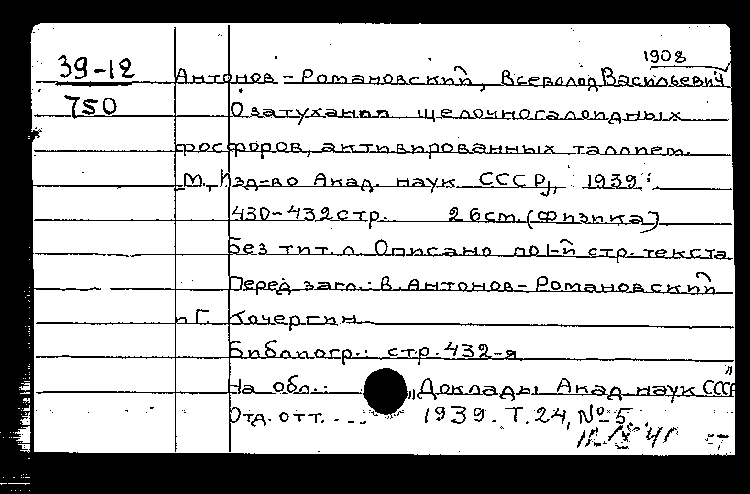 1908
39-12
Антонов-Романовский, Всеволод Васильевич
750
О затухании щелочногалоидных
фосфоров, активированных таллием.
М., Изд-во Акад. наук СССР, 1939.
430-432 стр. 26 см. (Физика)
Без тит. л. Описано по 1-й стр. текста
Перед загл.: В. Антонов-Романовский
и Г. Кочергин
Библиогр.: стр. 432-я
На обл.: „Доклады Акад. наук СССР"
Отд. отт. . . . 1939. Т. 24, № 5.